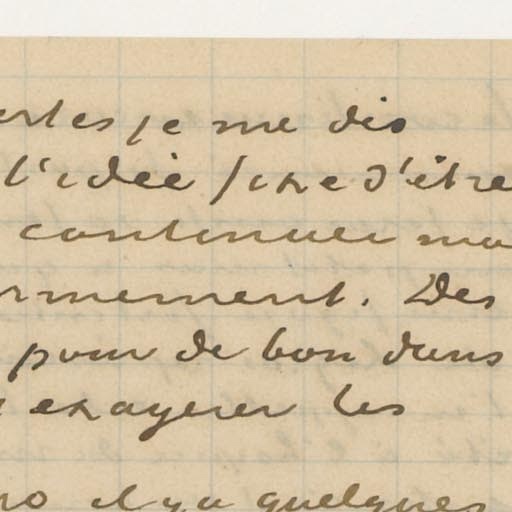 ertes je me dis
l'idée fixe d'être
continuer ma
rmement. Des
pour de bon dans
exagerer les
il y a quelques